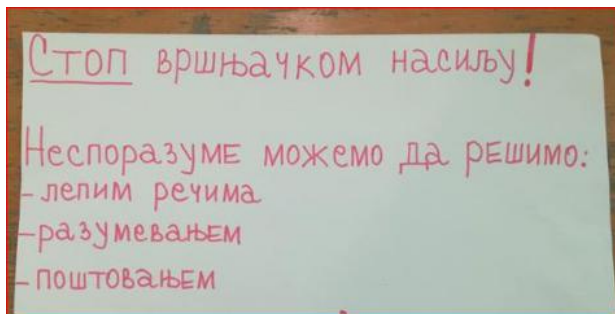 Стоп вршњачком насиљу!
Неспоразуме можемо да решимо:
-лепим речима
-разумевањем
-поштовањем